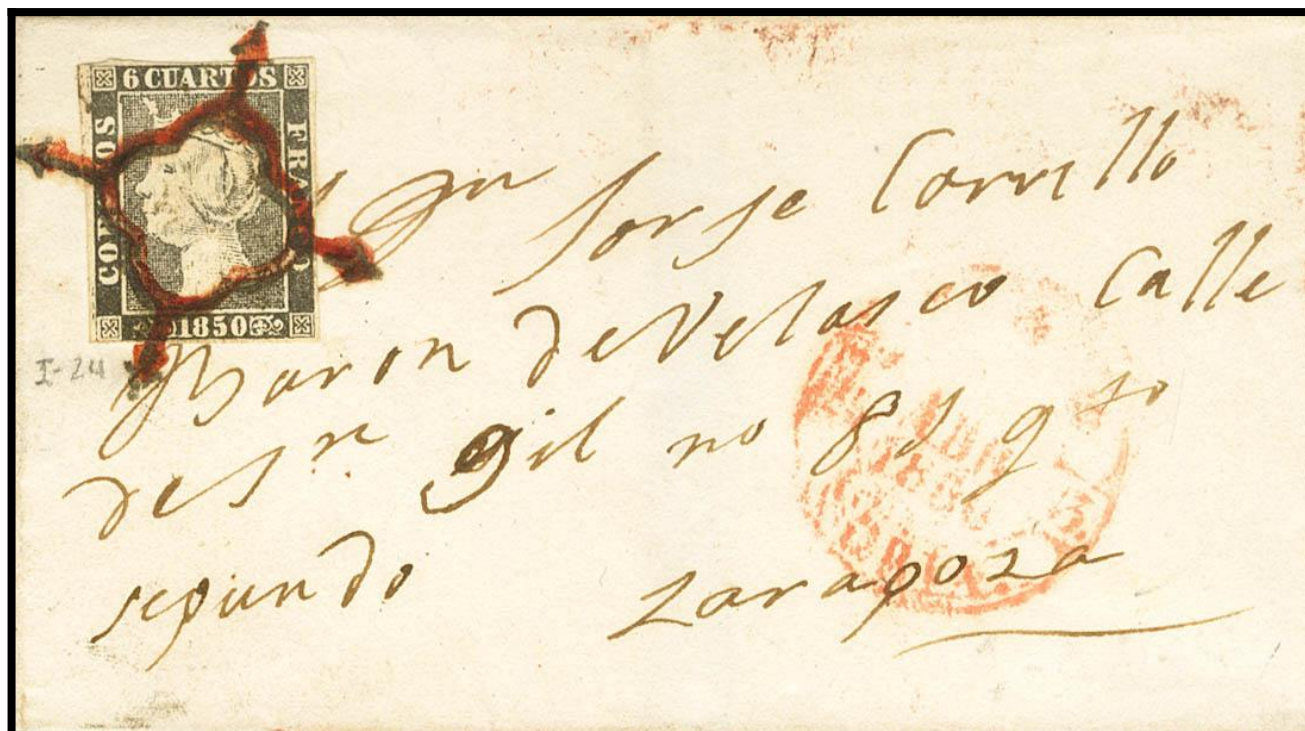 6 CUARTOS
CORREOS
FRANCO
1850
I-24
Dn Jorje Corrillo
Baron de Velasco Calle
de Sn Gil no 81 qto
segundo Zaragoza